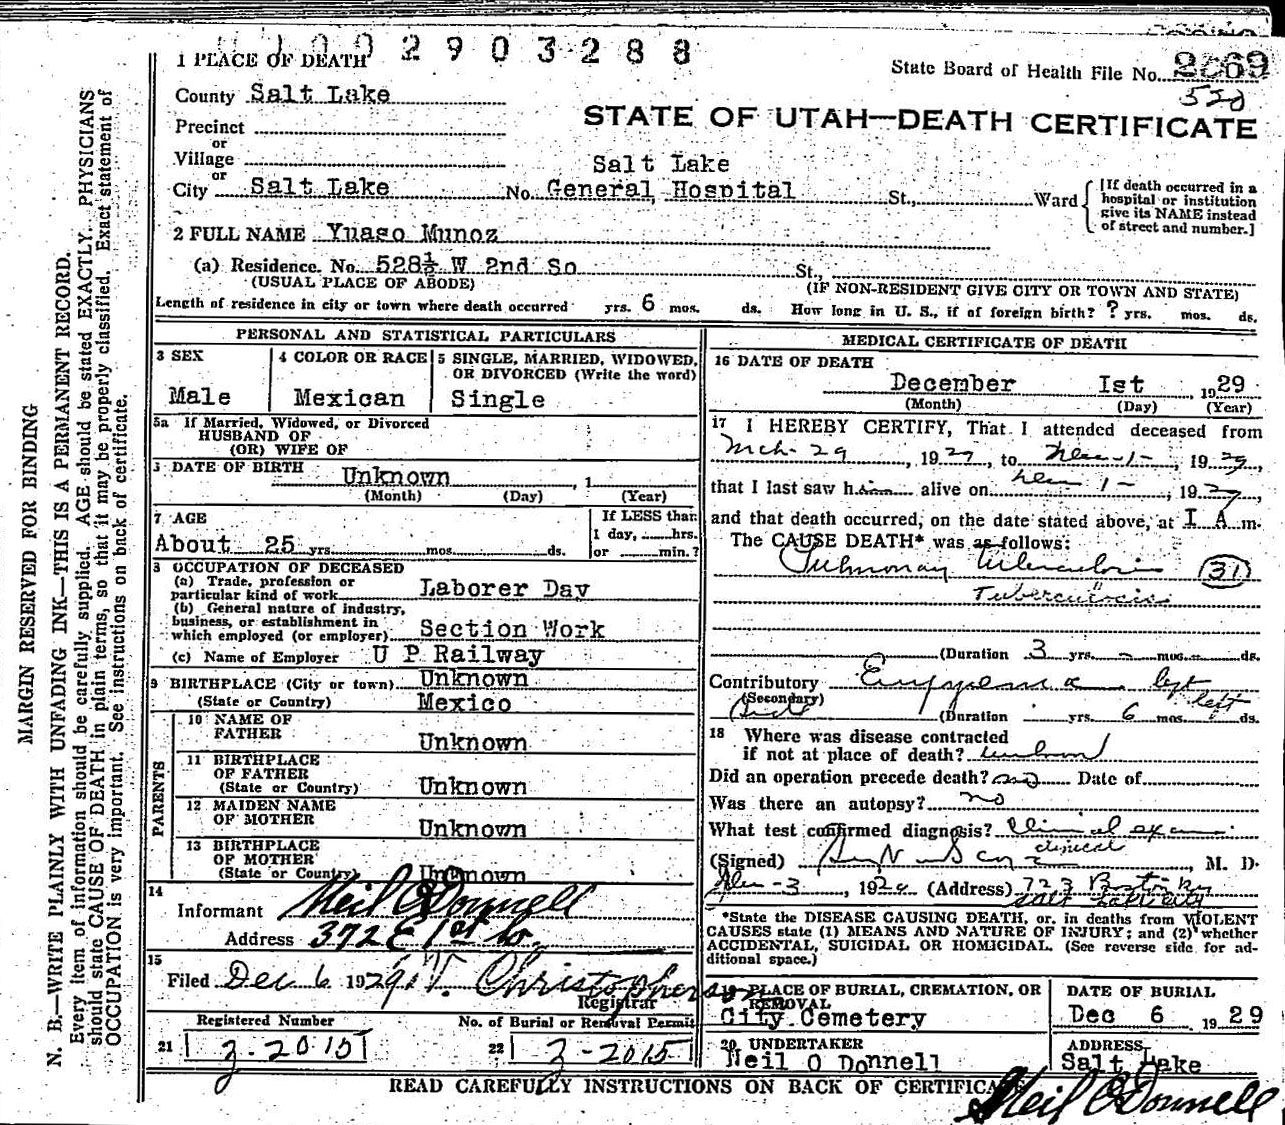 1 0 0 2 9 0 3 2 8 8
1 PLACE OF DEATH
State Board of Health File No. 2669
520
County Salt Lake
STATE OF UTAH—DEATH CERTIFICATE
Precinct
or
Village
Salt Lake
or
City Salt Lake No. General Hospital St., Ward
[If death occurred in a
hospital or institution
give its NAME instead
of street and number.]
2 FULL NAME Yuaso Munoz
(a) Residence. No. 528½ W 2nd So St.,
(USUAL PLACE OF ABODE) (IF NON-RESIDENT GIVE CITY OR TOWN AND STATE)
Length of residence in city or town where death occurred yrs. 6 mos. ds. How long in U. S., if of foreign birth? ? yrs. mos. ds.
PERSONAL AND STATISTICAL PARTICULARS
3 SEX
Male
4 COLOR OR RACE
Mexican
5 SINGLE, MARRIED, WIDOWED,
OR DIVORCED (Write the word)
Single
5a If Married, Widowed, or Divorced
HUSBAND OF
(OR) WIFE OF
DATE OF BIRTH Unknown , 1
(Month) (Day) (Year)
7 AGE
About 25 yrs. mos. ds.
If LESS than
1 day, hrs.
or min.?
8 OCCUPATION OF DECEASED
(a) Trade, profession or
particular kind of work Laborer Day
(b) General nature of industry,
business, or establishment in
which employed (or employer) Section Work
(c) Name of Employer U P Railway
9 BIRTHPLACE (City or town) Unknown
(State or Country) Mexico
PARENTS
10 NAME OF
FATHER Unknown
11 BIRTHPLACE
OF FATHER
(State or Country) Unknown
12 MAIDEN NAME
OF MOTHER Unknown
13 BIRTHPLACE
OF MOTHER
(State or Country) Unknown
14
Informant Neil O'Donnell
Address 372 E 1st So.
15
Filed Dec 6 1929 Christopherson
Registrar
Registered Number No. of Burial or Removal Permit
21 3-2015 22 3-2015
MEDICAL CERTIFICATE OF DEATH
16 DATE OF DEATH
December Ist , 1929
(Month) (Day) (Year)
17 I HEREBY CERTIFY, That I attended deceased from
Mch-29 , 1929, to Dec-1- , 1929,
that I last saw him alive on Dec 1- , 1929,
and that death occurred, on the date stated above, at I A m.
The CAUSE DEATH* was as follows:
Pulmonary Tuberculosis 31
Tuberculocis
(Duration 3 yrs. - mos. - ds.
Contributory Empyema left
(Secondary) side
(Duration yrs. 6 mos. ds.
18 Where was disease contracted
if not at place of death? unknown
Did an operation precede death? no Date of
Was there an autopsy? no
What test confirmed diagnosis? Clinical exam
clinical
(Signed) , M. D.
Dec-3 , 1929 (Address) 723 Boston
Salt Lake City
*State the DISEASE CAUSING DEATH, or, in deaths from VIOLENT
CAUSES state (1) MEANS AND NATURE OF INJURY; and (2) whether
ACCIDENTAL, SUICIDAL OR HOMICIDAL. (See reverse side for ad-
ditional space.)
19 PLACE OF BURIAL, CREMATION, OR
REMOVAL
City Cemetery
DATE OF BURIAL
Dec 6 1929
20 UNDERTAKER
Neil O Donnell
ADDRESS
Salt Lake
READ CAREFULLY INSTRUCTIONS ON BACK OF CERTIFICATE
Neil O'Donnell
MARGIN RESERVED FOR BINDING
N. B.—WRITE PLAINLY WITH UNFADING INK—THIS IS A PERMANENT RECORD.
Every item of information should be carefully supplied. AGE should be stated EXACTLY. PHYSICIANS
should state CAUSE OF DEATH in plain terms, so that it may be properly classified. Exact statement of
OCCUPATION is very important. See instructions on back of certificate.